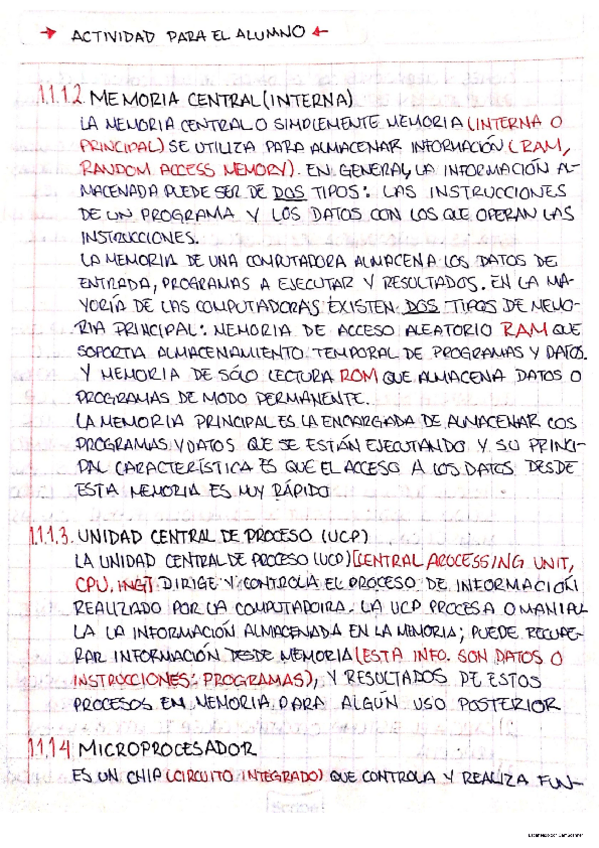 → ACTIVIDAD PARA EL ALUMNO ←
1.1.1.2. MEMORIA CENTRAL (INTERNA)
LA MEMORIA CENTRAL O SIMPLEMENTE MEMORIA (INTERNA O
PRINCIPAL) SE UTILIZA PARA ALMACENAR INFORMACIÓN (RAM,
RANDOM ACCESS MEMORY). EN GENERAL, LA INFORMACIÓN AL-
MACENADA PUEDE SER DE DOS TIPOS: LAS INSTRUCCIONES
DE UN PROGRAMA Y LOS DATOS CON LOS QUE OPERAN LAS
INSTRUCCIONES.
LA MEMORIA DE UNA COMPUTADORA ALMACENA LOS DATOS DE
ENTRADA, PROGRAMAS A EJECUTAR Y RESULTADOS. EN LA MA-
YORÍA DE LAS COMPUTADORAS EXISTEN DOS TIPOS DE MEMO-
RIA PRINCIPAL: MEMORIA DE ACCESO ALEATORIO RAM QUE
SOPORTA ALMACENAMIENTO TEMPORAL DE PROGRAMAS Y DATOS.
Y MEMORIA DE SÓLO LECTURA ROM QUE ALMACENA DATOS O
PROGRAMAS DE MODO PERMANENTE.
LA MEMORIA PRINCIPAL ES LA ENCARGADA DE ALMACENAR LOS
PROGRAMAS Y DATOS QUE SE ESTÁN EJECUTANDO Y SU PRINCI-
PAL CARACTERÍSTICA ES QUE EL ACCESO A LOS DATOS DESDE
ESTA MEMORIA ES MUY RÁPIDO
1.1.1.3. UNIDAD CENTRAL DE PROCESO (UCP)
LA UNIDAD CENTRAL DE PROCESO (UCP) [CENTRAL PROCESSING UNIT,
CPU, ING] DIRIGE Y CONTROLA EL PROCESO DE INFORMACIÓN
REALIZADO POR LA COMPUTADORA. LA UCP PROCESA O MANIAL
LA LA INFORMACIÓN ALMACENADA EN LA MEMORIA; PUEDE RECUPE-
RAR INFORMACIÓN DESDE MEMORIA (ESTA INFO. SON DATOS O
INSTRUCCIONES: PROGRAMAS), Y RESULTADOS DE ESTOS
PROCESOS EN MEMORIA PARA ALGÚN USO POSTERIOR
1.1.1.4 MICROPROCESADOR
ES UN CHIP (CIRCUITO INTEGRADO) QUE CONTROLA Y REALIZA FUN-